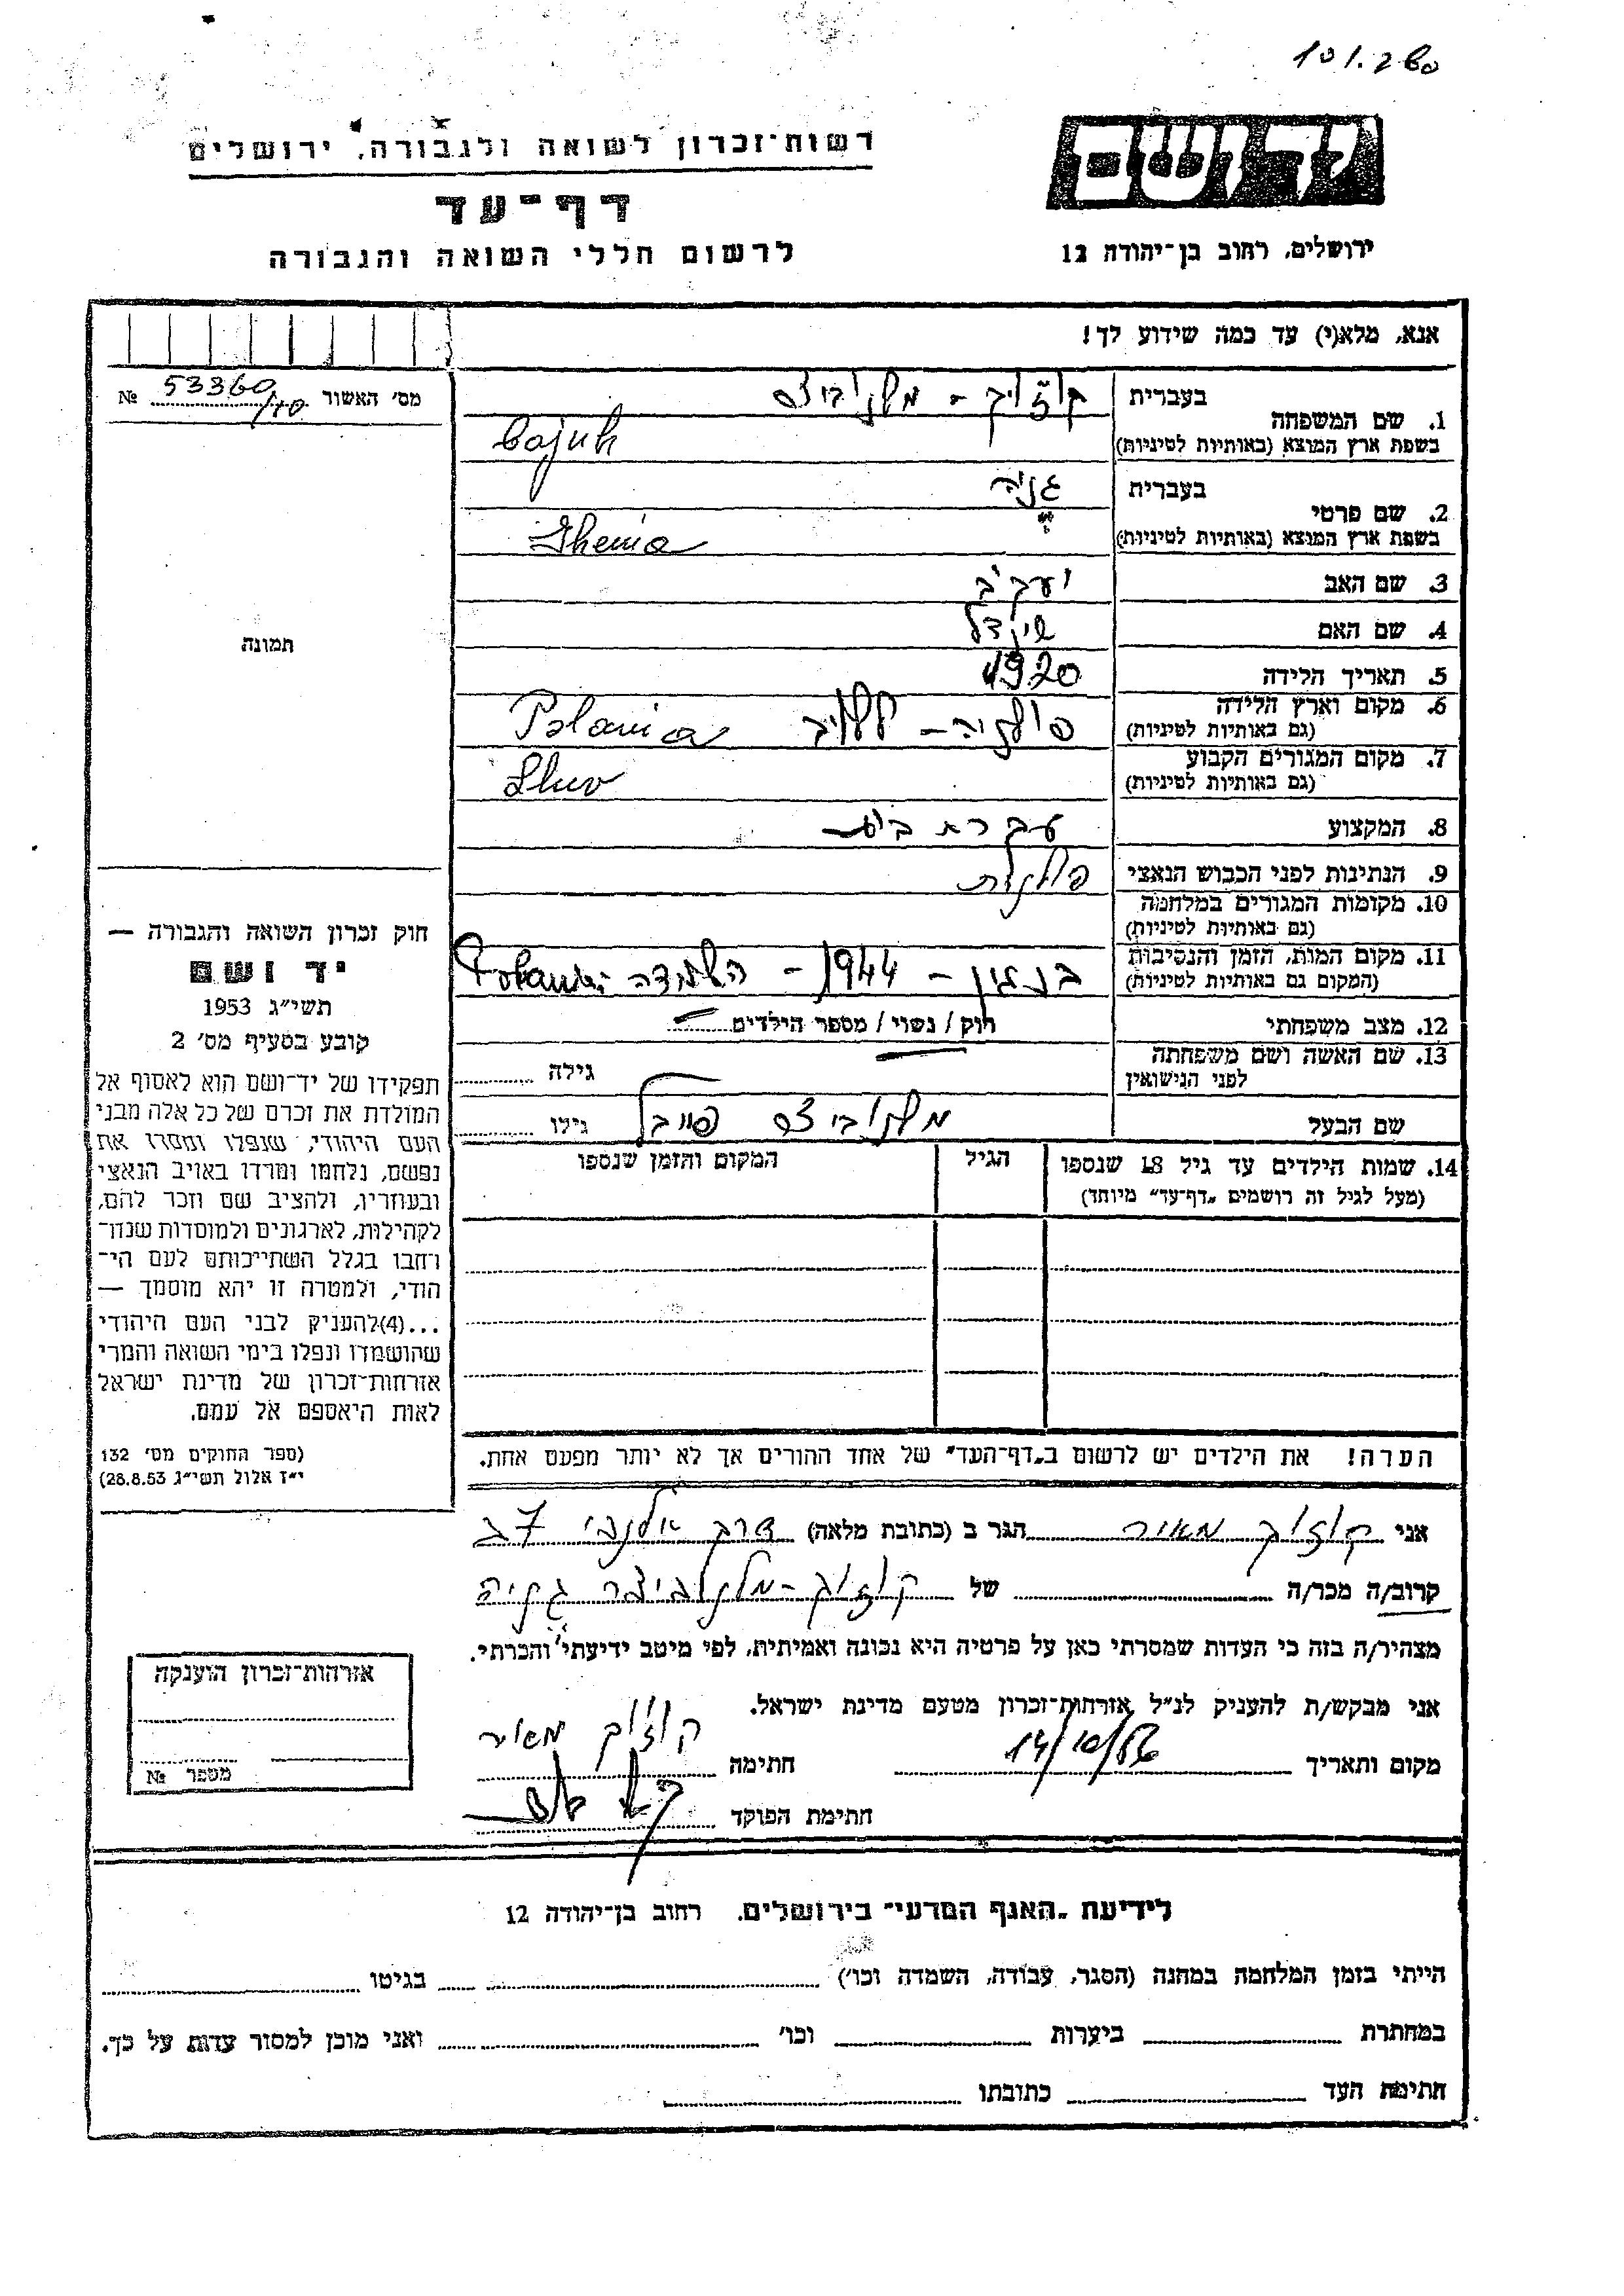 101.260
רשות־זכרון לשואה ולגבורה, ירושלים
ידושם
דף־עד
לרשום חללי השואה והגבורה
ירושלים, רחוב בן־יהודה 12
אנא, מלא(י) עד כמה שידוע לך!
מס' האשור 53360/70 №
1. שם המשפחה
בעברית
בשפת ארץ המוצא (באותיות לטיניות)
2. שם פרטי
בעברית גניה
בשפת ארץ המוצא (באותיות לטיניות) Shenia
3. שם האב יעקב
4. שם האם שינדל
5. תאריך הלידה 1920
6. מקום וארץ הלידה
(גם באותיות לטיניות) פולניה – Polania
7. מקום המגורים הקבוע
(גם באותיות לטיניות)
8. המקצוע עקרת בית
9. הנתינות לפני הכבוש הנאצי פולנית
10. מקומות המגורים במלחמה
(גם באותיות לטיניות)
11. מקום המות, הזמן והנסיבות
(המקום גם באותיות לטיניות) – 1944 – השמדה
12. מצב משפחתי רוק / נשוי / מספר הילדים
13. שם האשה ושם משפחתה
לפני הנישואין גילה
שם הבעל גילו
14. שמות הילדים עד גיל 18 שנספו
(מעל לגיל זה רושמים „דף־עד" מיוחד)
הגיל
המקום והזמן שנספו
הערה! את הילדים יש לרשום ב„דף־העד" של אחד ההורים אך לא יותר מפעם אחת.
תמונה
חוק זכרון השואה והגבורה —
יד ושם
תשי"ג 1953
קובע בסעיף מס' 2
תפקידו של יד־ושם הוא לאסוף אל
המולדת את זכרם של כל אלה מבני
העם היהודי, שנפלו ומסרו את
נפשם, נלחמו ומרדו באויב הנאצי
ובעוזריו, ולהציב שם וזכר להם,
לקהילות, לארגונים ולמוסדות שנח־
רבו בגלל השתייכותם לעם הי־
הודי, ולמטרה זו יהא מוסמך —
...(4)להעניק לבני העם היהודי
שהושמדו ונפלו בימי השואה והמרי
אזרחות־זכרון של מדינת ישראל
לאות היאספם אל עמם.
(ספר החוקים מס' 132
י"ז אלול תשי"ג 28.8.53)
אני קוזוק מאיר הגר ב (כתובת מלאה) דרך אלנבי
קרוב/ה מכר/ה של קוזוק
מצהיר/ה בזה כי העדות שמסרתי כאן על פרטיה היא נכונה ואמיתית, לפי מיטב ידיעתי והכרתי.
אני מבקש/ת להעניק לנ"ל אזרחות־זכרון מטעם מדינת ישראל.
מקום ותאריך חתימה קוזוק מאיר
חתימת הפוקד
אזרחות־זכרון הוענקה
מספר №
לידיעת „האגף המדעי" בירושלים, רחוב בן־יהודה 12
הייתי בזמן המלחמה במחנה (הסגר, עבודה, השמדה וכו') בגיטו
במחתרת ביערות וכו' ואני מוכן למסור עדות על כך.
חתימת העד כתובתו